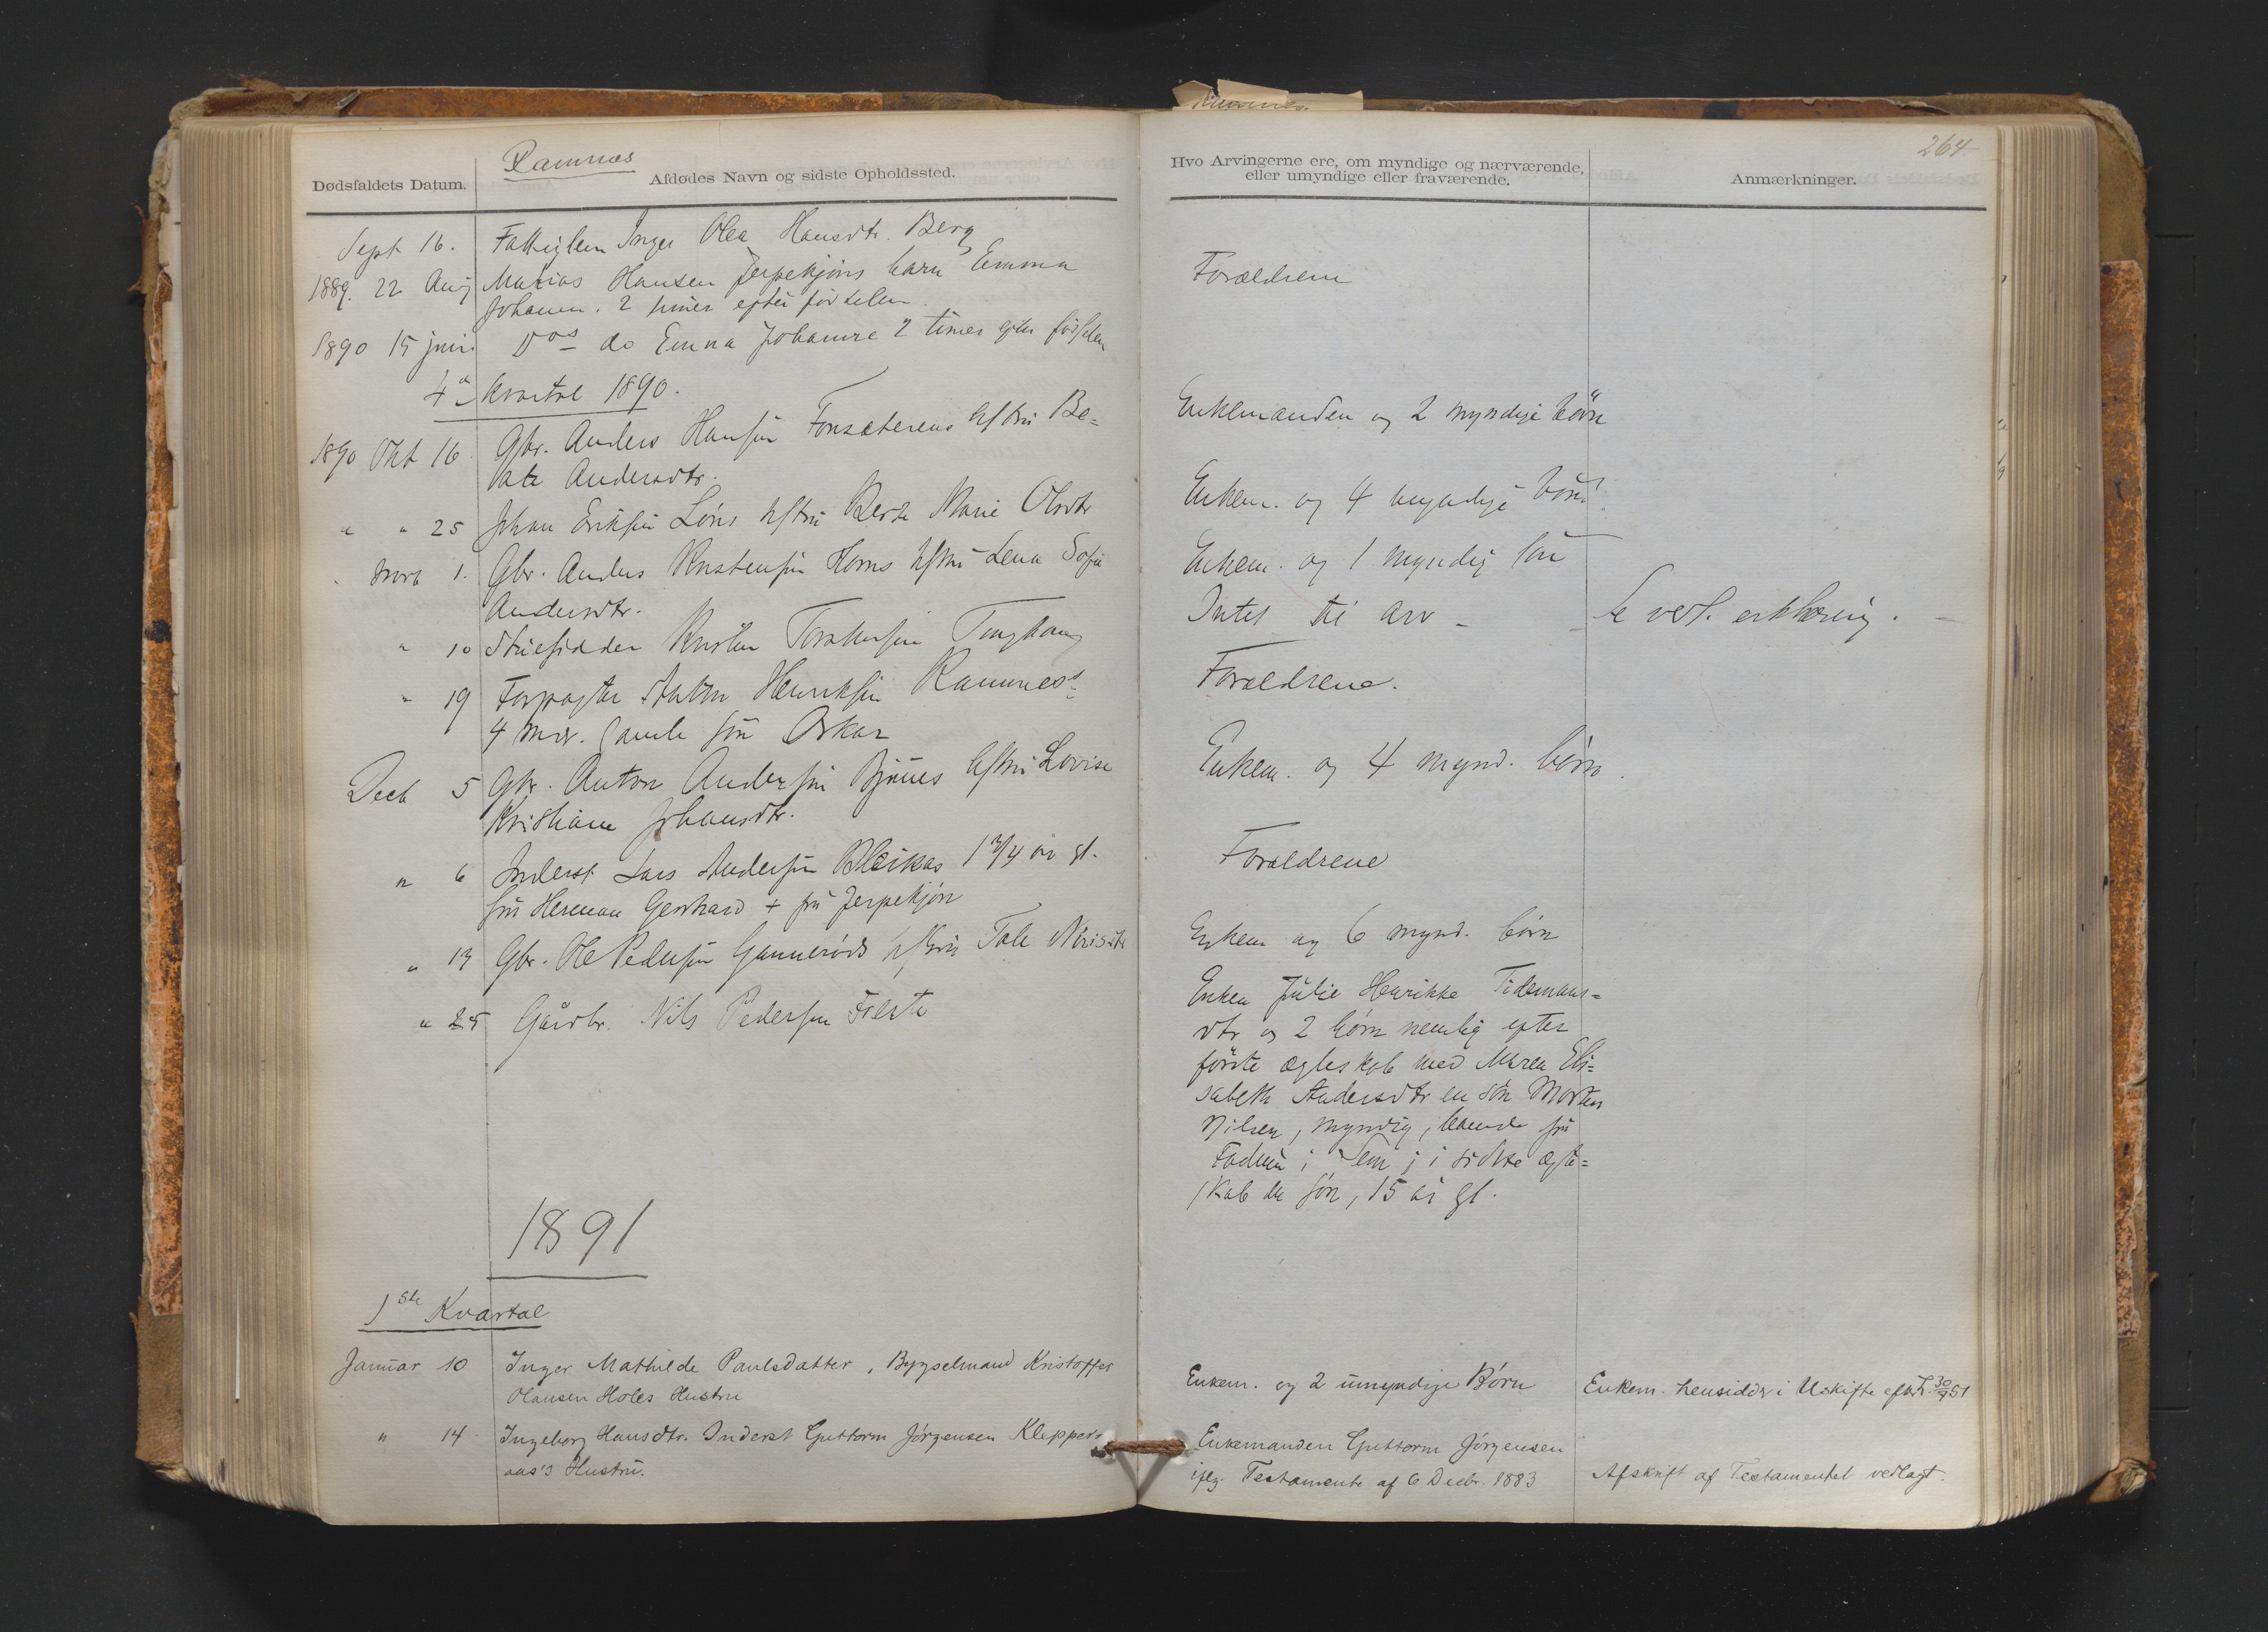 Ramnæs
264
Dødsfaldets Datum.
Afdødes Navn og sidste Opholdssted.
Hvo Arvingerne ere, om myndige og nærværende,
eller umyndige eller fraværende.
Anmærkninger.
Sept 16. Fattiglem Inger Olea Hansdtr. Berg
1889. 22 Aug Mathias Hansen Jerpekjøns barn Emma
Johanne. 2 timer efter fødselen
Forældrene
1890 15 juni Do's do Emma Johanne 2 timer efter fødselen
4de kvartal 1890.
1890 Okt 16 Gbr. Anders Hansen Fonsæterens hstru Be-
Enkemanden og 2 myndige børn
ate Andersdtr.
" " 25 Johan Eriksen Löns hstru Berte Marie Olsdtr
Enkem. og 4 myndige børn.
" Novb 1. Gbr. Anders Kristensen Horns hstru Lena Sofie
Enkem. og 1 myndig søn
Andersdtr.
" 10 Husfidder
Intet til arv - Se vedl. erklæring.
" 19 Forpagter Anton Henriksen Ramnes's
Forældrene.
4 mdr. gamle søn Oskar
Decb 5 Gbr. Anton Andersen Bjunes hstru Lovise
Enkem. og 4 mynd. børn.
Kristiane Johansdtr.
" 6 Inderst Lars Andersen Bleikas 1 3/4 år gl.
Forældrene
søn Herman Gerhard + på Jerpekjøn
" 13 Gbr. Ole Pedersen Gunnerøds hstru Tale Nirisdtr
Enkem og 6 mynd. børn
" 25 Gårdbr. Nils Pedersen
Enken Julie Henrikke Tidemans-
dtr og 2 børn nemlig efter
første ægteskab med Maren Eli-
sabeth Andersdtr en søn Morten
Nilsen, myndig, boende på
i Sem; i sidste ægte-
skab en søn, 15 år gl.
1891
1ste Kvartal
Januar 10 Inger Mathilde Paulsdatter, Bygselmand Kristoffer
Olausen Holes Hustru
Enkem. og 2 umyndige Børn
Enkem. hensidder i Uskifte efter L. 30/7 51
" 14 Ingeborg Hansdtr. Inderst Guttorm Jörgensen Klepper-
aas's Hustru.
Enkemanden Guttorm Jörgensen
iflg. Testamente af 6 Decbr. 1883
Afskrift af Testamentet vedlagt.